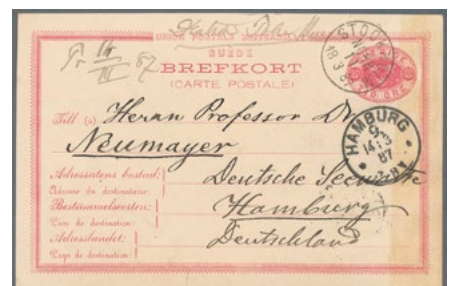 UNION POSTALE UNIVERSELLE
SUÈDE
BREFKORT
(CARTE POSTALE)
Till (à) Herrn Professor Dr.
Neumayer
Adressatens bostad:
Adresse du destinataire:
Deutsche Seewarte
Bestämmelseorten:
Lieu de destination:
Hamburg
Adresslandet:
Pays de destination:
Deutschland
HAMBURG
14.3
87